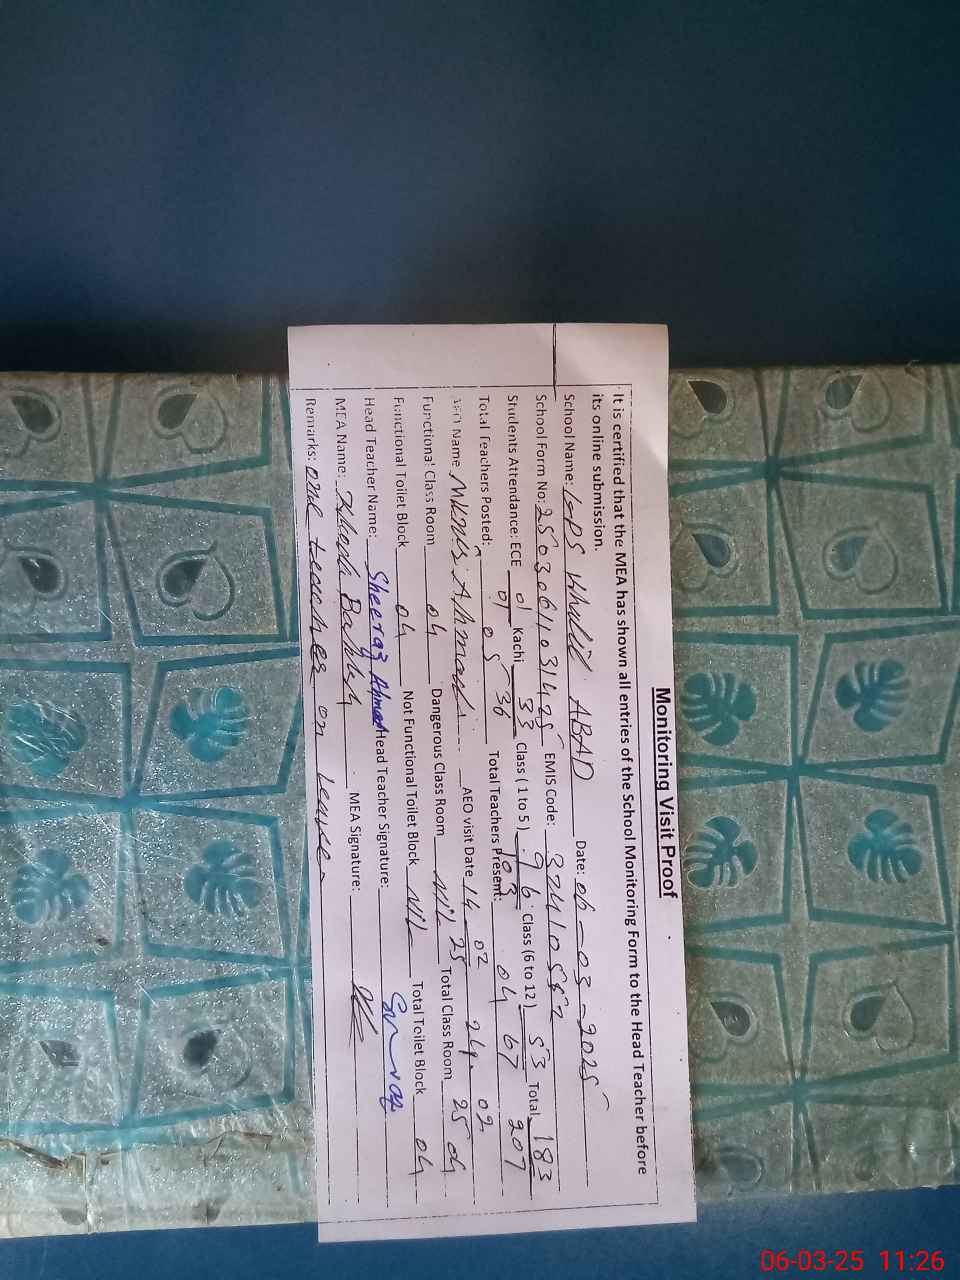 Monitoring Visit Proof
It is certified that the MEA has shown all entries of the School Monitoring Form to the Head Teacher before
its online submission.
School Name: GPS Khalil ABAD Date: 06-03-2025
School Form No: 2503061031425 EMIS Code:
Students Attendance: ECE 01 Kachi 33 Class (1 to 5) 96 Class (6 to 12) 53 Total 183
01 36 103 67 207
Total Teachers Posted: 05 Total Teachers Present: 04
AEO Name Ahmad AEO visit Date 14 02 24 02
25 25
Functional Class Room 04 Dangerous Class Room NIL Total Class Room 04
Functional Toilet Block 04 Not Functional Toilet Block NIL Total Toilet Block 04
Head Teacher Name: Sheeraz Ahmad Head Teacher Signature:
MEA Name: Bakhsh MEA Signature:
Remarks: one teacher on leave
06-03-25 11:26